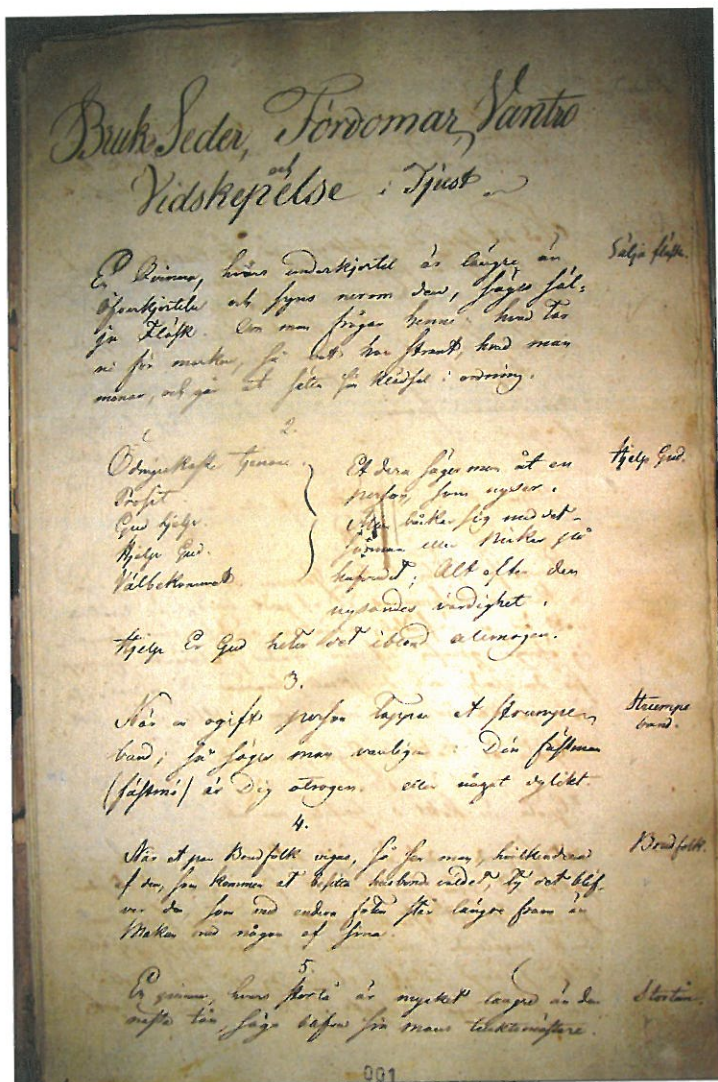 Bruk Seder, Fördomar, Vantro
och
Vidskepelse i Tjust
En Qvinna, hvars underkjortel är längre än
öfverkjorteln och syns nerom den, säges säl-
ja Fläsk. Om man frågar henne: hvad tar
ni för marken, så vet hon strant, hvad man
menar, och går at sätta sin klädsel i ordning.
Sälja fläsk.
2.
Ödmjukaste tjenare.
Prosit.
Gud hjelp.
Hjelp Gud.
Välbekommet
Et dera säger man åt en
person, som nyser.
Man båckar sig med det-
samma eller nickar på
hufvudet; Alt efter den
nysandes värdighet.
Hjelp Gud.
Hjelp Er Gud heter det ibland allmogen.
3.
När en ogift person tappar et strumpe-
band; så säger man vanligen: Din fästman
(fästmö) är Dig otrogen. eller något dylikt.
Strumpe
band.
4.
När et par Brudfolk vigas, så ser man, hvilkendera
af dem, som kommer at besitta husbondeväldet, ty det blif-
ver den som med endera foten står längre fram än
Makan med någon af sina.
Brudfolk.
5.
En qvinna, hvars stortå är mycket längre än den
nästa tån, säges blifva sin mans tuktomästare.
Stortån.
001